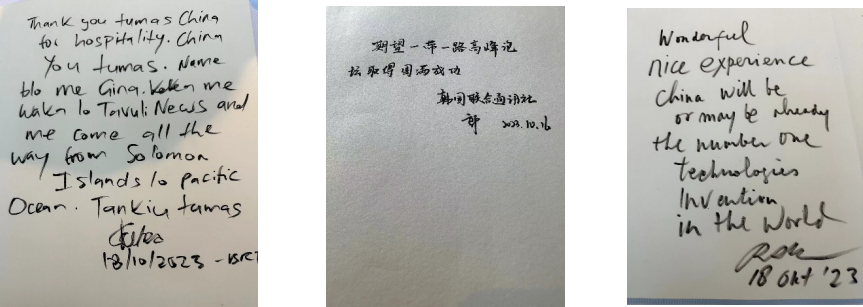 Thank you tumas China
for hospitality. China
You tumas. Name
blo me Gina. Keken me
waka lo Tavuli News and
me come all the
way from Solomon
Islands lo pacific
Ocean. Tankiu tumas
18/10/2023 -
期望一带一路高峰论
坛取得圆满成功
韩国联合通讯社
郭 2023.10.16
Wonderful
nice experience
China will be
or may be already
the number one
technologies
Invention
in the World
18 Okt '23